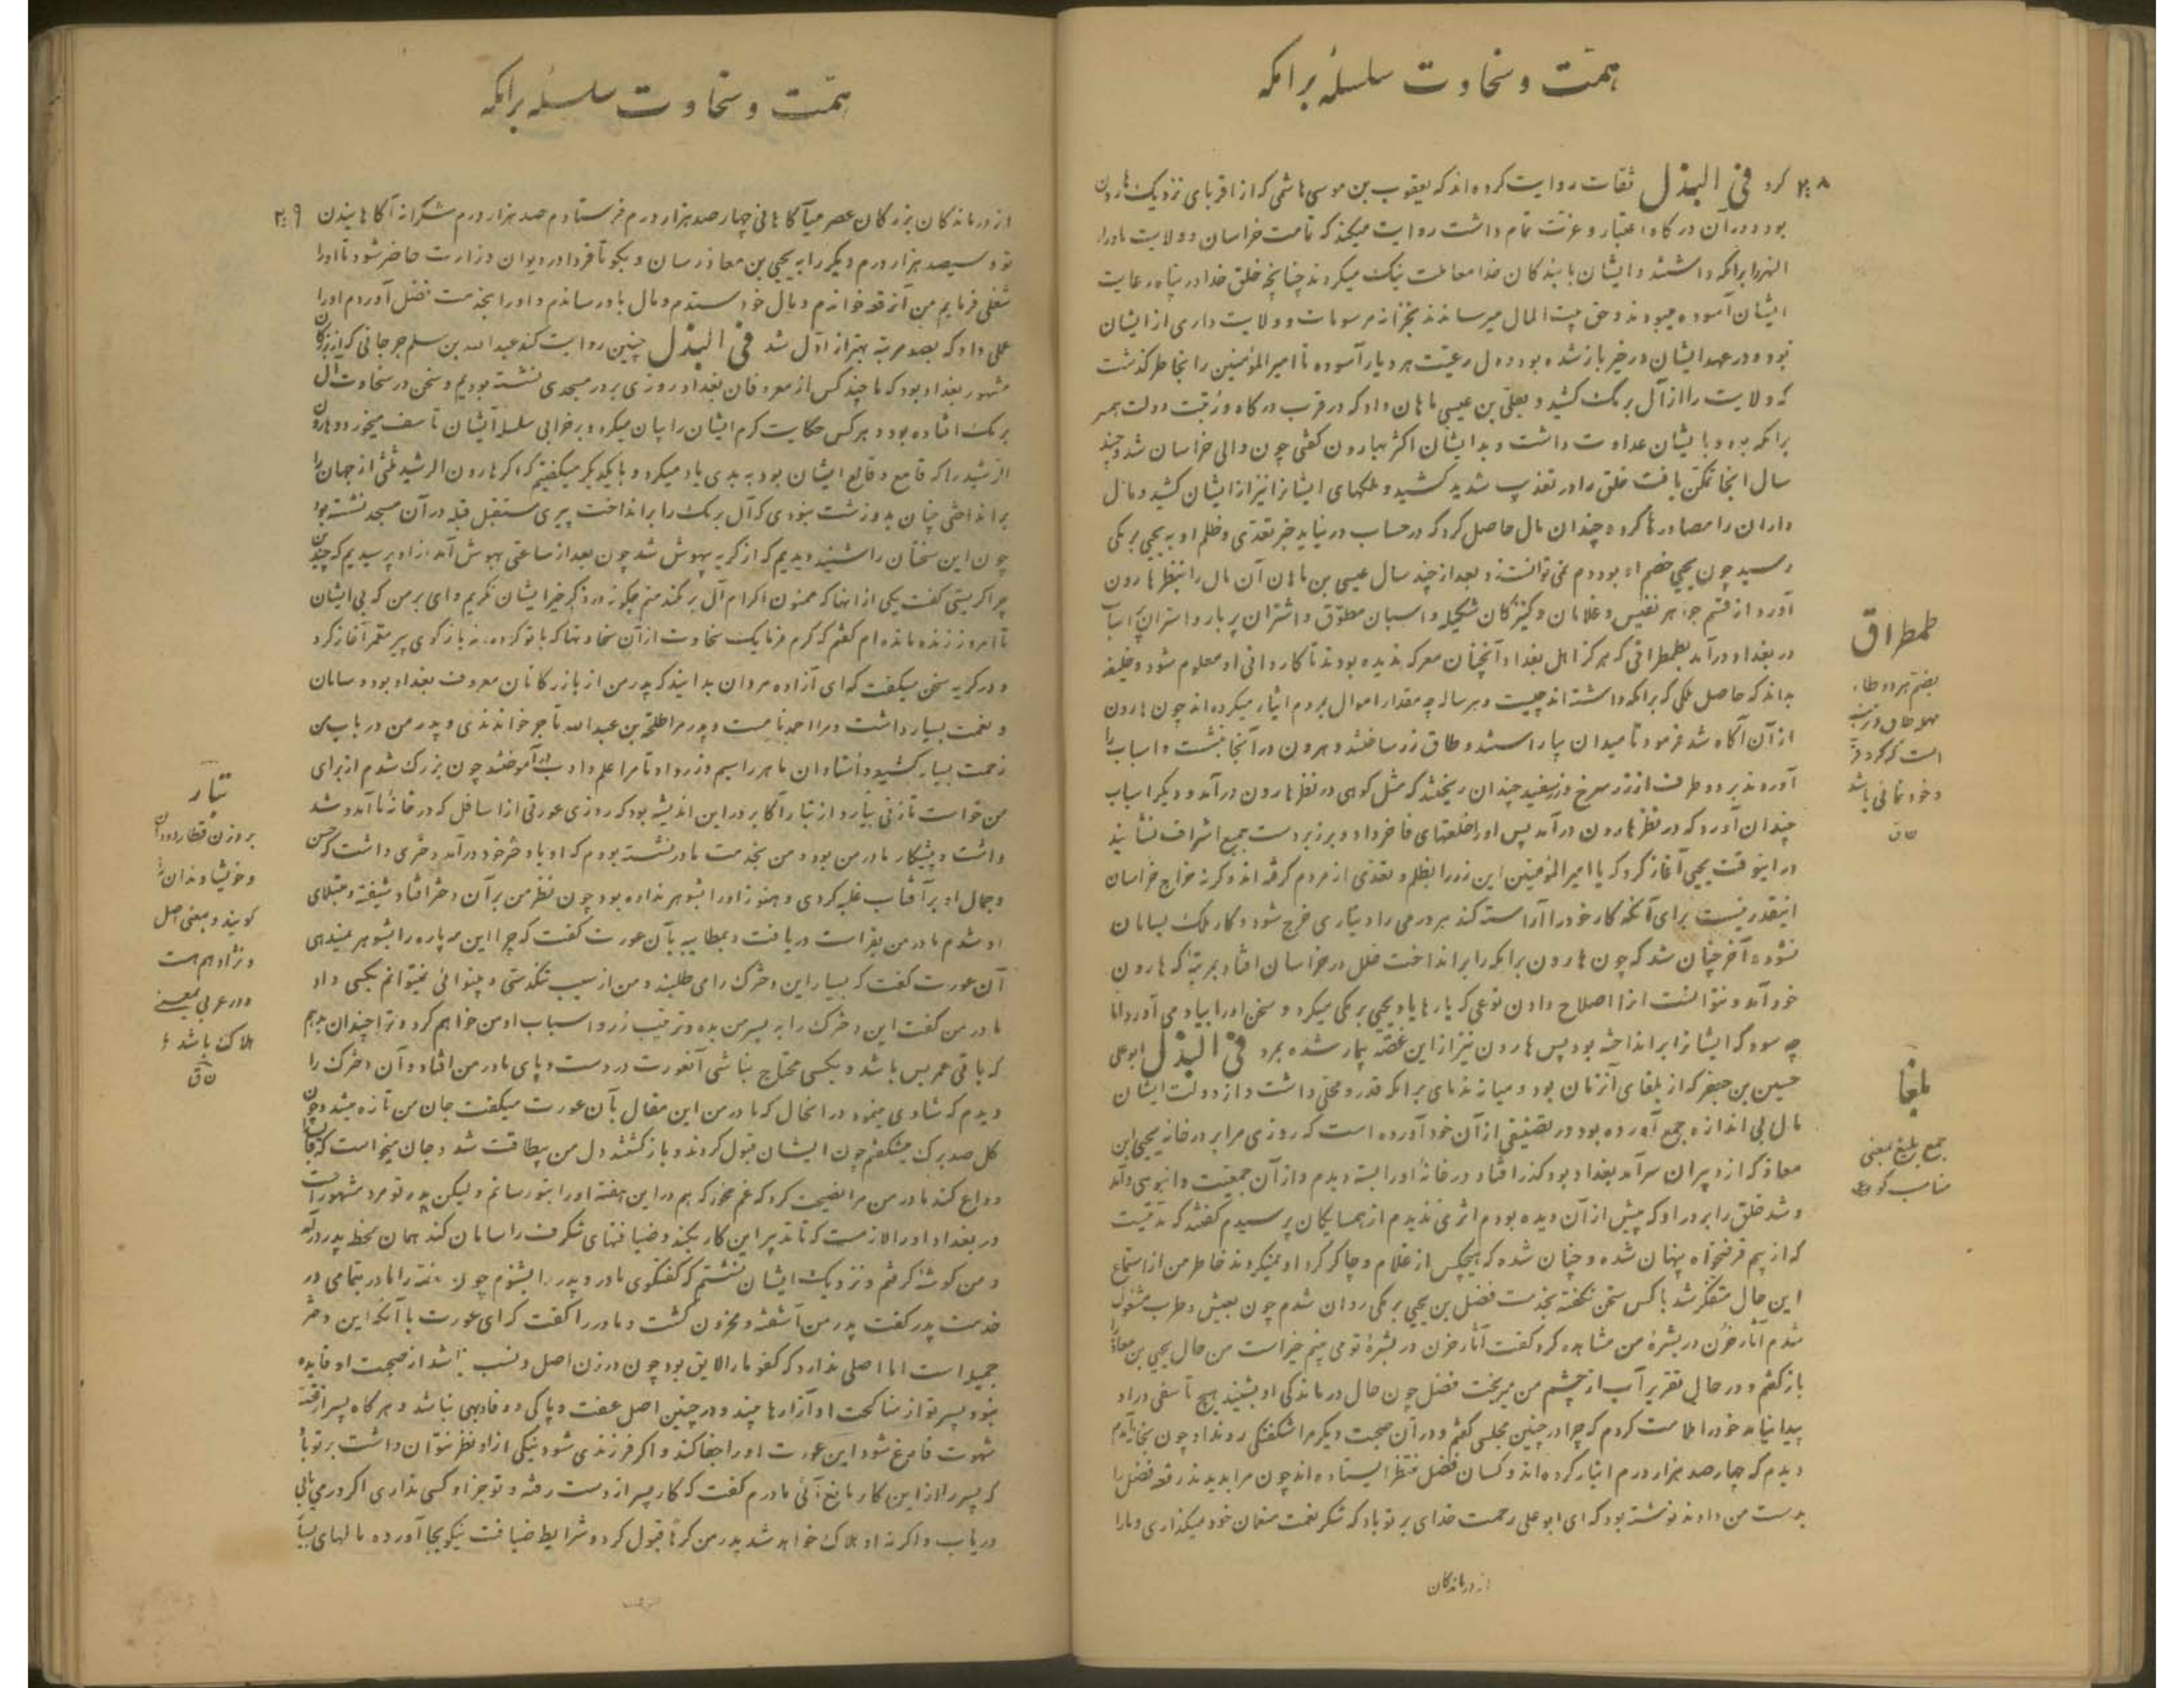 همت و سخاوت سلسلهٔ برامکه
۲۰۸ کرد فی البذل ثقات روایت کرده‌اند که یعقوب بن موسی هاشمی که از اقربای نزدیک هارون
بود و در آن درگاه اعتبار و عزت تمام داشت روایت میکند که تا مدت خراسان و ولایت ماوراء
النهر را برامکه داشتند و ایشان با بندکان خدا معاملت نیک میکردند چنانچه خلق خدا در پناه رعایت
ایشان آسوده میبودند و حق بیت المال میرساندند بخزانه مرسومات و ولایت داری از ایشان
بود و در عهد ایشان در خیر باز شده بود و دل رعیت هر دیار آسوده تا امیر المؤمنین را بخاطر کذشت
که ولایت را از آل برمک کشید و بعلی بن عیسی ماهان داد که در قرب درکاه و رتبت دولت همسر
برامکه بود و با ایشان عداوت داشت و بد ایشان اکثر بهارون کفتی چون والی خراسان شد و چند
سال انجا تمکن یافت خلق را در تعذیب شدید کشید و ملکهای ایشانرا نیز از ایشان کشید و مال
داران را مصادرها کرد و چندان مال حاصل کرد که در حساب در نیاید خبر تعدی و ظلم او به یحیی برمکی
رسید چون یحیی خصم او بود دم نمی توانست زد بعد از چند سال عیسی بن ماهان آن مال را بنظر هارون
آورد از قسم جواهر نفیس و غلامان و کنیزکان شکیله و اسبان مطوق و اشتران پر بار و استران با اسباب
در بغداد در آمد بطمطراقی که هرکز اهل بغداد آنچنان معرکه ندیده بودند تا کاردانی او معلوم شود و خلیفه
بداند که حاصل ملکی که برامکه داشته‌اند چیست و هر ساله چه مقدار اموال بمردم ایثار میکرده‌اند چون هارون
از آن آگاه شد فرمود تا میدان بیاراستند و طاق زر ساختند و هرون در آنجا بنشست و اسباب را
آوردند بر دو طرف از زر سرخ و زر سفید چندان ریختند که مثل کوهی در نظر هارون درآمد و دیکر اسباب
چندان آورد که در نظر هارون درآمد پس او را خلعتهای فاخر داد و بر زبر دست جمیع اشراف نشانید
در اینوقت یحیی آغاز کرد که یا امیر المؤمنین این زر را بظلم و تعدی از مردم کرفته‌اند و کر نه خراج خراسان
اینقدر نیست برای آنکه کار خود را آراسته کند بر درمی را دیناری خرج شود و کار ملک بسامان
نشود آخر چنان شد که چون هارون برامکه را برانداخت خلل در خراسان افتاد بمرتبهٔ که هارون
خود آمد و نتوانست انرا اصلاح دادن نوعی که بارها یاد یحیی برمکی میکرد و سخن او را بیاد می آورد اما
چه سود که ایشانرا برانداخته بود پس هارون نیز از این غصه بیمار شده بمرد فی البذل ابو علی
حسین بن جعفر که از بلغای آنزمان بود و میانه ندمای برامکه قدر و محلی داشت و از دولت ایشان
مال بی اندازه جمع آورده بود در تصنیفی از آن خود آورده است که روزی مرا بر در خانه یحیی ابن
معاذ که از دبیران سرآمد بغداد بود کذر افتاد در خانهٔ او را بسته دیدم و از آن جمعیت و انبوهی و آمد
و شد خلق را بر در او که پیش از آن دیده بودم اثری ندیدم از همسایکان پرسیدم کفتند که مدتیست
که از بیم قرضخواه پنهان شده و چنان شده که هیچکس از غلام و چاکر کرد او نمیکردند خاطر من از استماع
این حال متفکر شد با کس سخن نکفته بخدمت فضل بن یحیی برمکی روان شدم چون بعیش و طرب مشغول
شدم آثار حزن در بشرهٔ من مشاهده کرد کفت آثار حزن در بشرهٔ تو می بینم خیر است من حال یحیی بن معاذ را
باز کفتم و در حال تقریر آب از چشم من میریخت فضل چون حال درماندکی او بشنید هیچ تأسفی در او
پیدا نیامد خود را ملامت کردم که چرا در چنین مجلسی کفتم و در آن صحبت دیکر مرا شکفتکی روندا و چون بخانه آمدم
دیدم که چهار صد هزار درم انبار کرده‌اند و کسان فضل منتظر ایستاده‌اند چون مرا بدیدند رقعه فضل را
بدست من دادند نوشته بود که ای ابو علی رحمت خدای بر تو باد که شکر نعمت منعمان خود میکذاری و ما را
از درماندکان
طمطراق
بضم هر دو طاء
مهملهٔ
است که کر و فر
و خودنمائی باشد
ن ق
بلغا
جمع بلیغ بمعنی
همت و سخاوت سلسلهٔ برامکه
از درماندکان بزرکان عصر میآکاهانی چهار صد هزار درم فرستادم صد هزار درم شکرانه آکاهانیدن ۲۰۹
تو و سیصد هزار درم دیکر را به یحیی بن معاذ رسان و بکو تا فردا در دیوان وزارت حاضر شود تا او را
شغلی فرمایم من آنرقعه خواندم و مال خود ستدم و مال باو رساندم و او را بخدمت فضل آوردم او را
عملی داد که بصد مرتبه بهتر از اول شد فی البذل چنین روایت کند عبد الله بن سلم جرجانی که از بزرکان
مشهور بغداد بود که با چند کس از معروفان بغداد روزی بر در مسجدی نشسته بودیم و سخن در سخاوت آل
برمک افتاده بود و هر کس حکایت کرم ایشان را بیان میکرد و بر خرابی سلسلهٔ ایشان تأسف میخورد و هارون
الرشید را که قامع و قالع ایشان بود به بدی یاد میکرد و با یکدیکر میکفتیم که اکر هارون الرشید ثلثی از جهان را
برانداختی چنان بد و زشت نبودی که آل برمک را برانداخت پیری مستقبل قبله در آن مسجد نشسته بود
چون این سخنان را شنید دیدیم که از کریه بیهوش شد چون بعد از ساعتی بهوش آمد از او پرسیدیم که چندین
چرا کریستی کفت یکی از آنها که ممنون اکرام آل برمکند منم چکونه در ذکر خیر ایشان نکریم وای بر من که بی ایشان
تا امروز زنده مانده‌ام کفتم که کرم فرما یک سخاوت از آن سخاوتها که با تو کرده‌اند باز کوی پیر معمر آغاز کرد
و در کریه سخن میکفت که ای آزاده مردان بدانید که پدر من از بازرکانان معروف بغداد بود و سامان
و نعمت بسیار داشت و مرا احمد نامست و پدر مرا طلحة بن عبد الله تاجر خواندندی و پدر من در باب من
زحمت بسیار کشید و استادان ماهر را سیم و زر داد تا مرا علم و ادب بیآموختند چون بزرک شدم از برای
من خواست تا زنی بیارد از تبار اکابر در این اندیشه بود که روزی عورتی از اسافل که در خانهٔ ما آمد و شد
داشت و پیشکار مادر من بود و من بخدمت مادر نشسته بودم که او با دختر خود درآمد دختری داشت که حسن
و جمال او بر آفتاب غلبه کردی و هنوز او را بشوهر نداده بود چون نظر من بر آن دختر افتاد شیفته و مبتلای
او شدم مادر من بفراست دریافت و بمطایبه بآن عورت کفت که چرا این مه پاره را بشوهر نمیدهی
آن عورت کفت که بسیار این دخترک را می طلبند و من از سبب تنکدستی و بینوائی نمیتوانم بکسی داد
مادر من کفت این دخترک را به پسر من بده و ترتیب زر و اسباب او من خواهم کرد و ترا چندان دهم
که باقی عمر بس باشد و بکسی محتاج نباشی آنعورت در دست و پای مادر من افتاد و آن دخترک را
دیدم که شادی مینمود در انحال که مادر من این مقال بآن عورت میکفت جان من تازه میشد و چون
کل صدبرک میشکفتم چون ایشان قبول کردند و بازکشتند دل من بیطاقت شد و جان میخواست که قالب را
وداع کند مادر من مرا نصیحت کرد که غم مخور که هم در این هفته او را بتو رسانم ولیکن پدر تو مرد مشهور است
در بغداد او را لازمست که تا تدبیر این کار بکند و ضیافتهای شکرف را سامان کند همان لحظه پدر درآمد
و من کوشه کرفتم و نزدیک ایشان نشستم که کفتکوی مادر و پدر را بشنوم چون قصه را مادر بتمامی در
خدمت پدر کفت پدر من آشفته و محزون کشت و مادر را کفت که ای عورت با آنکه این دختر
جمیله است اما اصلی ندارد که کفو ما را لایق بود چون در زن اصل و نسب نباشد از صحبت او فایده
نبود پسر تو از مناکحت او آزارها بیند و در چنین اصل عفت و پاکی و وفادهی نباشد و هر کاه پسر از فتنهٔ
شهوت فارغ شود این عورت او را جفا کند و اکر فرزندی شود نیکی از او نظر نتوان داشت بر تو باد
که پسر را از این کار مانع آئی مادرم کفت که کار پسر از دست رفته و تو جز او کسی نداری اکر در می یابی
دریاب و اکر نه او هلاک خواهد شد پدر من کرهاً قبول کرد و شرایط ضیافت نیکو بجا آورده مالهای بسیار
تبار
بر وزن قطار دودمان
و خویشاوندان را
کویند و بمعنی اصل
و نژاد هم هست
و در عربی بمعنی
هلاک باشد
ن ق